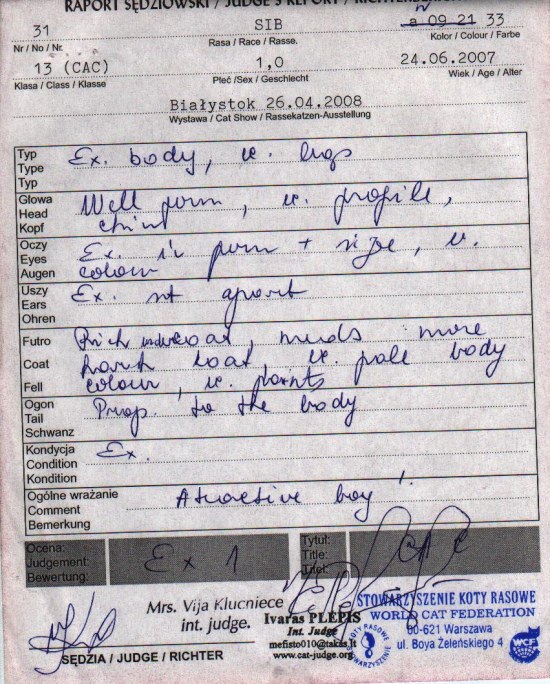 RAPORT SĘDZIOWSKI / JUDGE'S REPORT /
31 SIB n
a 09 21 33
Nr / No / Nr. Rasa / Race / Rasse. Kolor / Colour / Farbe
13 (CAC) 1,0 24.06.2007
Klasa / Class / Klasse Płeć /Sex / Geschlecht Wiek / Age / Alter
Białystok 26.04.2008
Wystawa / Cat Show / Rassekatzen-Ausstellung
Typ
Type Ex. body, legs
Typ
Głowa Well form, profile,
Head
Kopf chin
Oczy Ex. in form + size,
Eyes
Augen colour
Uszy
Ears Ex. set apart
Ohren
Futro Rich undercoat, needs more
Coat harsh coat, pale body
Fell colour, points
Ogon
Tail Prop. to the body
Schwanz
Kondycja
Condition Ex.
Kondition
Ogólne wrażanie
Comment Atractive boy!
Bemerkung
Ocena: Tytuł:
Judgement: Ex 1 Title: CAC
Bewertung: Titel:
Mrs. Vija Klucniece
int. judge.
SĘDZIA / JUDGE / RICHTER
Ivaras PLEPIS
Int. Judge
mefisto010@takas.lt
www.cat-judge.org
STOWARZYSZENIE KOTY RASOWE
WORLD CAT FEDERATION
00-621 Warszawa
ul. Boya Żeleńskiego 4
KOTY RASOWE
STOWARZYSZENIE
WCF